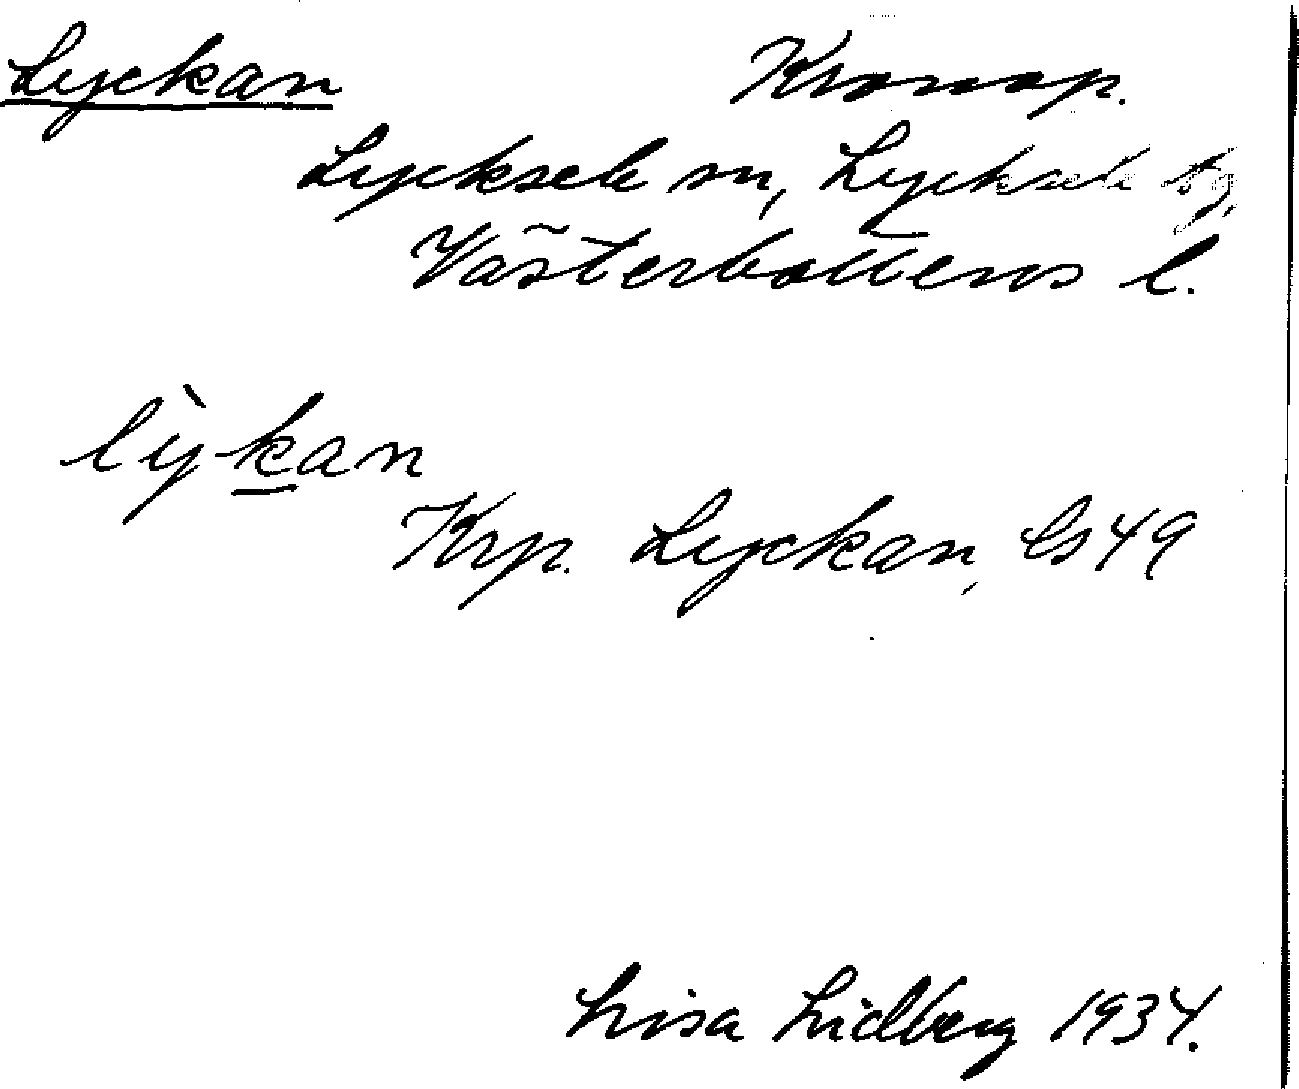 Lyckan Kronop.
Lycksele sn, Lycksele by,
Västerbottens l.
lỳkan
Krp. Lyckan, Ls 49
Lisa Lidberg 1934.